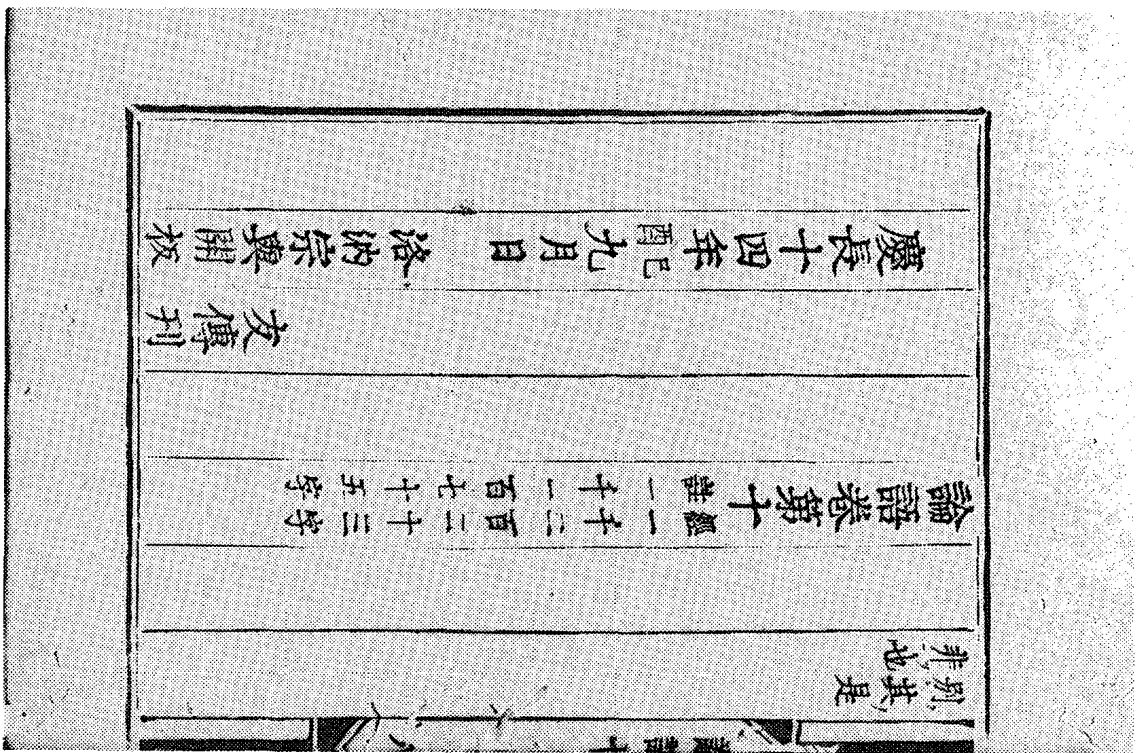 別其是
非也
論語卷第十
經一千二百二十三字
註一千一百七十五字
友傳刊
慶長十四年己酉九月日 洛汭宗與開板